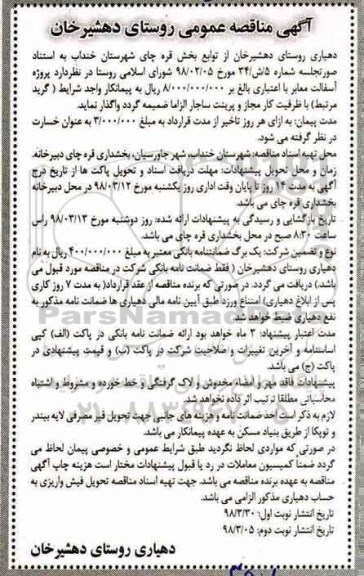 آگهی مناقصه عمومی روستای دهشیرخان
دهیاری روستای دهشیرخان از توابع بخش قره چای شهرستان خنداب به استناد
صورتجلسه شماره ۵/ش/۳۴ مورخ ۹۸/۰۲/۰۵ شورای اسلامی روستا در نظردارد پروژه
آسفالت معابر با اعتباری بالغ بر ۸/۰۰۰/۰۰۰/۰۰۰ ریال به پیمانکار واجد شرایط ( گرید
مرتبط) با ظرفیت کار مجاز و پرینت ساجار الزاما ضمیمه گردد واگذار نماید.
مدت پیمان: به ازای هر روز تاخیر از مدت قرارداد به مبلغ ۳/۰۰۰/۰۰۰ به عنوان خسارت
در نظر گرفته می شود.
محل تهیه اسناد مناقصه: شهرستان خنداب شهر جاورسیان، بخشداری قره چای دبیرخانه.
زمان و محل تحویل پیشنهادات: مهلت دریافت اسناد و تحویل پاکت ها از تاریخ درج
آگهی به مدت ۱۴ روز تا پایان وقت اداری روز یکشنبه مورخ ۹۸/۰۳/۱۲ در محل دبیرخانه
بخشداری قره چای می باشد.
تاریخ بازگشایی و رسیدگی به پیشنهادات ارائه شده: روز دوشنبه مورخ ۹۸/۰۳/۱۳ راس
ساعت ۸:۳۰ صبح در محل بخشداری قره چای می باشد.
نوع و تضمین شرکت: یک برگ ضمانتنامه بانکی معتبر به مبلغ ۴۰۰/۰۰۰/۰۰۰ ریال به نام
دهیاری روستای دهشیرخان ( فقط ضمانت نامه بانکی شرکت در مناقصه مورد قبول می
باشد) دریافت می گردد. در صورتی که برنده مناقصه از عقد قرارداد( به مدت ۷ روز کاری
پس از ابلاغ دهیاری) امتناع ورزد طبق آیین نامه مالی دهیاری ها ضمانت نامه مذکور به
نفع دهیاری ضبط خواهد شد.
مدت اعتبار پیشنهاد: ۳ ماه خواهد بود ارائه ضمانت نامه بانکی در پاکت (الف) کپی
اساسنامه و آخرین تغییرات و صلاحیت شرکت در پاکت (ب) و قیمت پیشنهادی در
پاکت (ج) می باشد.
پیشنهادات فاقد مهر و امضاء مخدوش و لاک گرفتگی و خط خورده و مشروط و اشتباه
محاسباتی مطلقا ترتیب اثر داده نخواهد شد.
لازم به ذکر است اخذ ضمانت نامه و هزینه های جانبی جهت تحویل قیر مصرفی لایه بیندر
و توپکا از طریق بنیاد مسکن به عهده پیمانکار می باشد.
در صورتی که مواردی لحاظ نگردید طبق شرایط عمومی و خصوصی پیمان لحاظ می
گردد ضمناً کمیسیون معاملات در رد یا قبول پیشنهادات مختار است هزینه چاپ آگهی
مناقصه به عهده برنده مناقصه می باشد. جهت تهیه اسناد مناقصه تحویل فیش واریزی به
حساب دهیاری مذکور الزامی می باشد.
تاریخ انتشار نوبت اول: ۹۸/۳/۳۰
تاریخ انتشار نوبت دوم: ۹۸/۳/۰۵
دهیاری روستای دهشیرخان